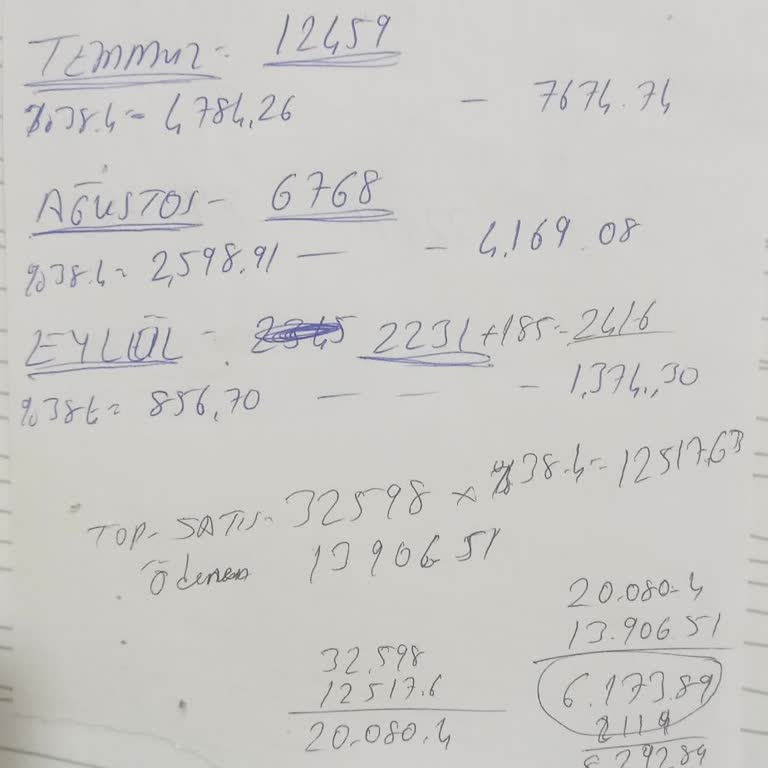 TEMMUZ - 12459
%38.4 = 4784,26 - 7674.74
AĞUSTOS - 6768
%38.4 = 2,598.91 — - 4,169.08
EYLÜL - 2231 +185 = 2416
%384 = 856,70 — — - 1.374,,30
TOP- SATIS - 32598 x %38.4 = 12517.63
Ödenen 13906 51
20.080.4
13.906.51
32.598
12517.6
20.080.4
6.173.89
2119
8.292.89